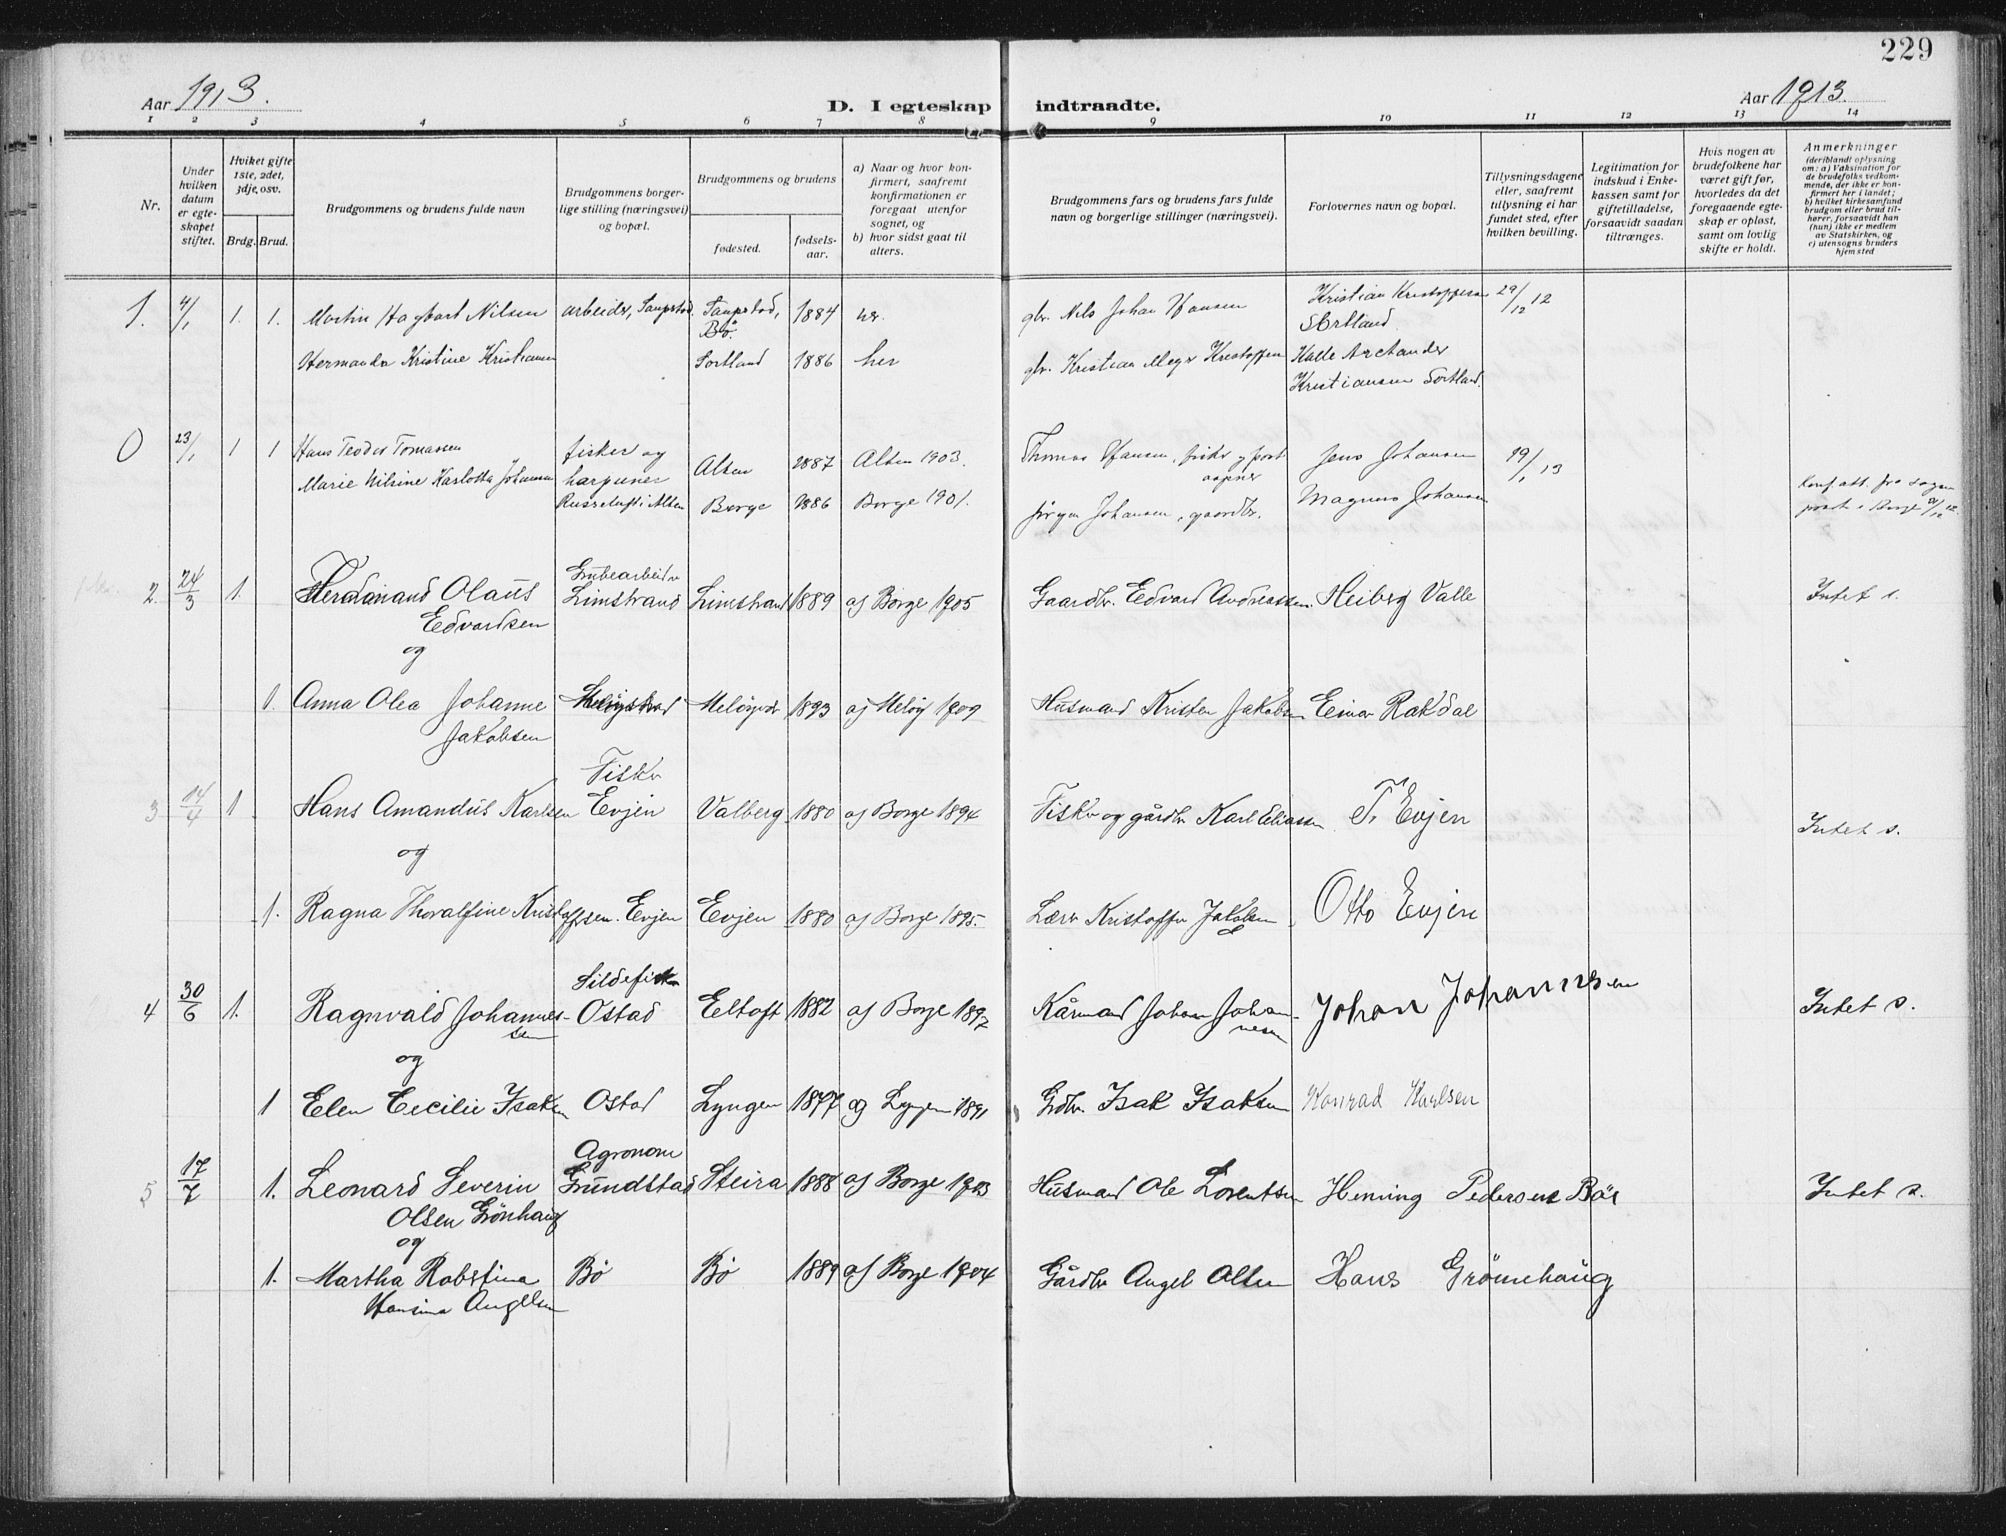 229
Aar 1913.
D. I egteskap indtraadte.
Aar 1913.
1 2 3 4 5 6 7 8 9 10 11 12 13 14
Nr.
Under hvilken datum er egteskapet stiftet.
Hviket gifte 1ste, 2det, 3dje, osv.
Brdg. Brud.
Brudgommens og brudens fulde navn
Brudgommens borgerlige stilling (næringsvei) og bopæl.
Brudgommens og brudens
fødested.
fødselsaar.
a) Naar og hvor konfirmert, saafremt konfirmationen er foregaat utenfor sognet, og
b) hvor sidst gaat til alters.
Brudgommens fars og brudens fars fulde navn og borgerlige stillinger (næringsvei).
Forlovernes navn og bopæl.
Tillysningsdagene eller, saafremt tillysning ei har fundet sted, efter hvilken bevilling.
Legitimation for indskud i Enkekassen samt for giftetilladelse, forsaavidt saadan tiltrænges.
Hvis nogen av brudefolkene har været gift før, hvorledes da det foregaaende egteskap er opløst, samt om lovlig skifte er holdt.
Anmerkninger
(deriblandt oplysning om: a) Vaksination for de brudefolks vedkommende, der ikke er konfirmert her i landet; b) hvilket kirkesamfund brudgom eller brud tilhører, forsaavidt han (hun) ikke er medlem av Statskirken, og c) utensogns bruders hjemsted
1. 4/1 1. 1. Martin Hagbart Nilsen arbeider, Taapstad. Taapstad, Bø. 1884 her. gbr. Nils Johan Hansen Kristian Kristoffersen Sortland 29/12 12
Hermanda Kristine Kristiansen Sortland 1886 her gbr. Kristian Meyer Kristoffersen Kalle Archander Kristiansen Sortland.
0 23/1 1 1 Hans Teodor Tomassen fisker og harpuner Russeluft i Alten Alten 1887 Alten 1903. Thomas Hansen, fisker og postaapner Jens Johansen 19/1 13
Marie Nilsine Karlotta Johansen Borge 1886 Borge 1901. Jørgen Johansen, gaardbr. Magnus Johansen Konf. att. fra sogneprest i Borge
2. 24/3 1. Ferdinand Olaüs Edvardsen Grubearbeider Limstrand Limstrand 1889 af Borge 1905 Gaardbr. Edvard Andreassen. Heiberg Valle Intet s.
og
1. Anna Olea Johanne Jakobsen Meløyvær 1893 af Meløy 1909 Husmand Kristen Jakobsen Einar Rakdal
3 14/4 1 Hans Amandus Karlsen Fisker Evjen Valberg 1880 af Borge 1894 Fisker og gårdbr Karl Eliassen T. Evjen Intet s.
og
1. Ragna Thoralfine Kristoffersen. Evjen Evjen 1880 af Borge 1895. Lærer Kristoffer Jakobsen Otto Evjen
4 30/6 1. Ragnvald Johannessen Sildefisker Ostad Eltoft 1882 af Borge 1897 Kårmand Johan Johannesen Johan Johannesen Intet s.
og
1 Elen Cecilie Isaksen Ostad Lyngen 1877 af Lyngen 1891 Grdbr. Isak Isaksen Konrad Karlsen
5 17/7 1. Leonard Severin Olsen Grönhaug Agronom Grundstad Steira 1888 af Borge 1903 Husmand Ole Lorentsen Heming Pedersen Bör Intet s.
og
1. Martha Robertina Hansina Angelsen Bö Bö 1889 af Borge 1904 Gårdbr Angel Olsen Hans Grönnehaug